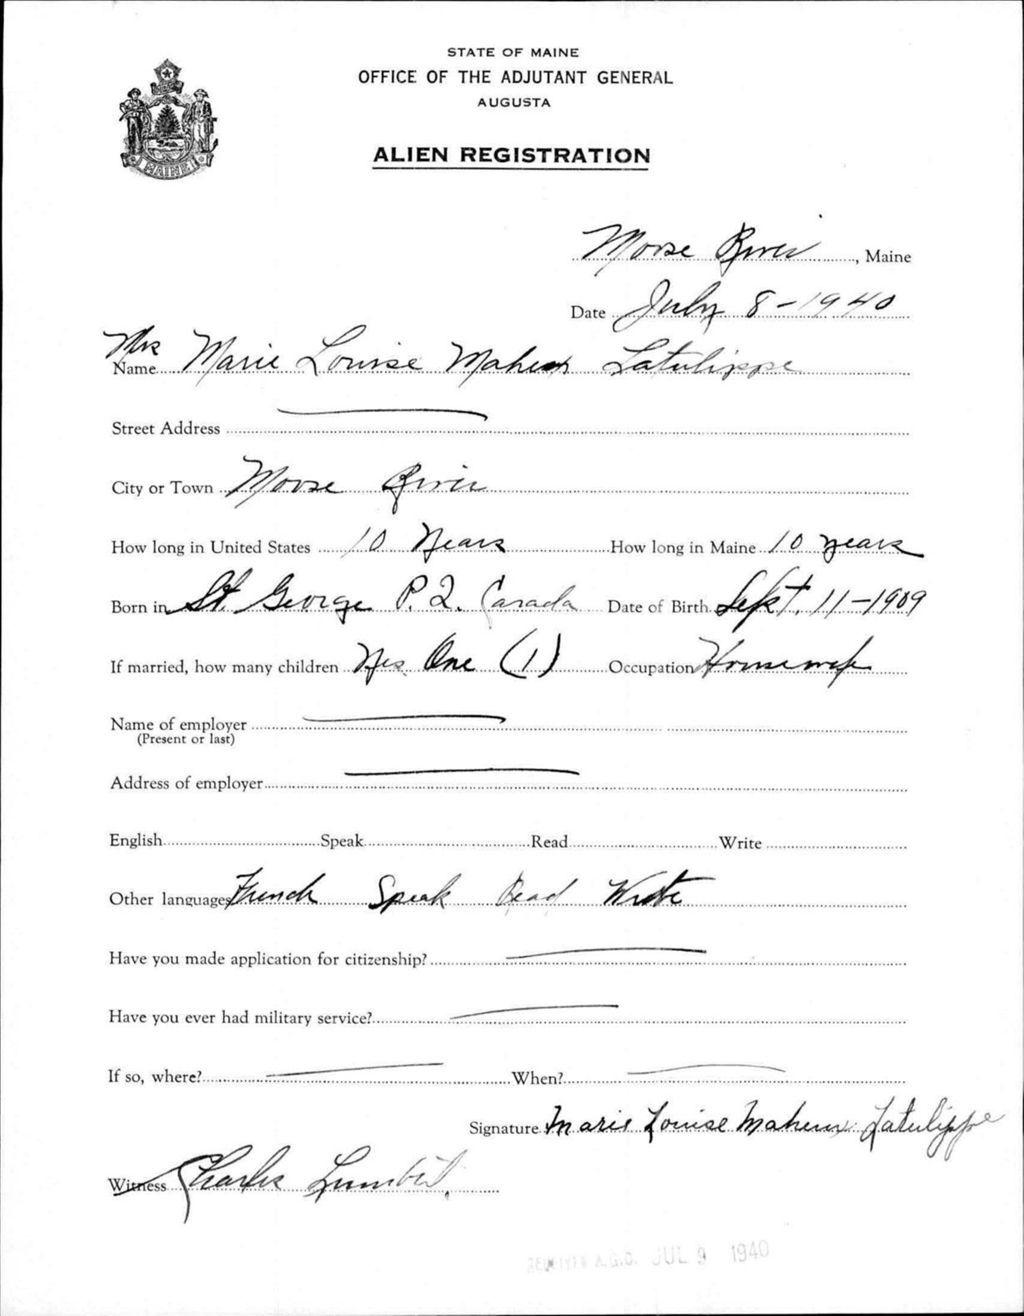 STATE OF MAINE
OFFICE OF THE ADJUTANT GENERAL
AUGUSTA
ALIEN REGISTRATION
MAINE
Moose River, Maine
Date July 8-1940
Mrs
Name Marie Louise Maheux Latulippe
Street Address
City or Town Moose River
How long in United States 10 Years How long in Maine 10 years
Born in St George P.Q. Canada Date of Birth Sept. 11-1909
If married, how many children Yes One (1) Occupation Housewife
Name of employer
(Present or last)
Address of employer
English Speak Read Write
Other languages French Speak Read Write
Have you made application for citizenship?
Have you ever had military service?
If so, where? When?
Signature Marie Louise Maheux Latulippe
Witness Charles Lumbert
RECEIVED A.G.O. JUL 9 1940